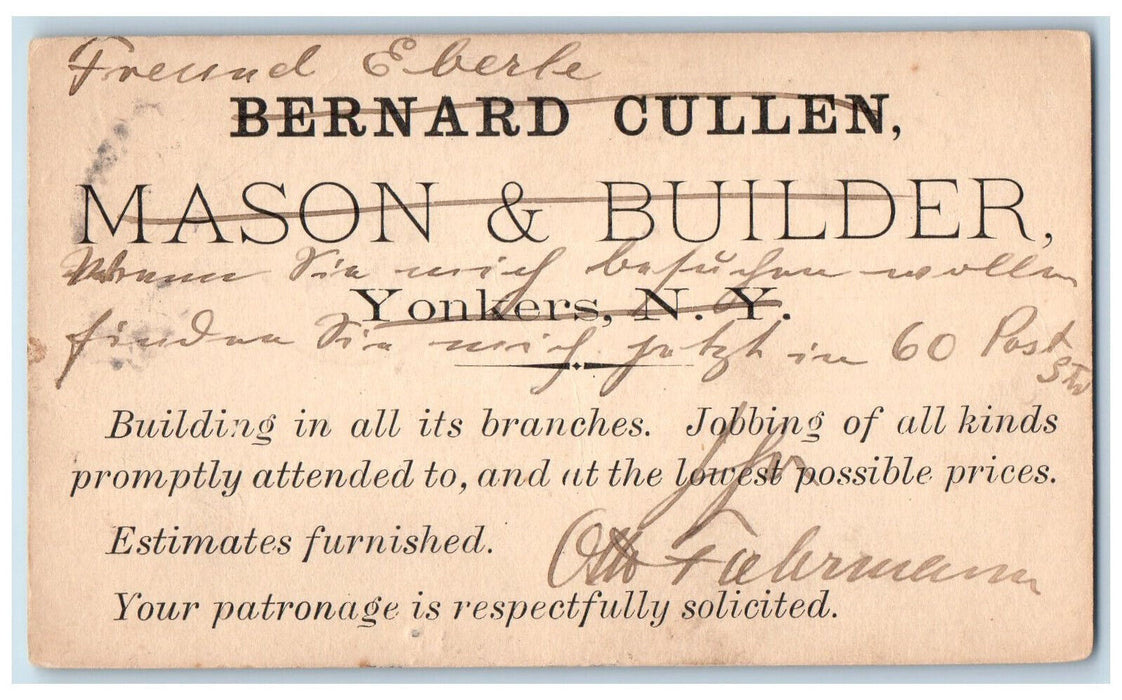 Freund Eberle
BERNARD CULLEN,
MASON & BUILDER,
Wenn Sie mich besuchen wollen
Yonkers, N. Y.
finden Sie mich jetzt in 60 Post
Str
Building in all its branches. Jobbing of all kinds
promptly attended to, and at the lowest possible prices.
Ihr
Estimates furnished.
Otto Fuhrmann
Your patronage is respectfully solicited.